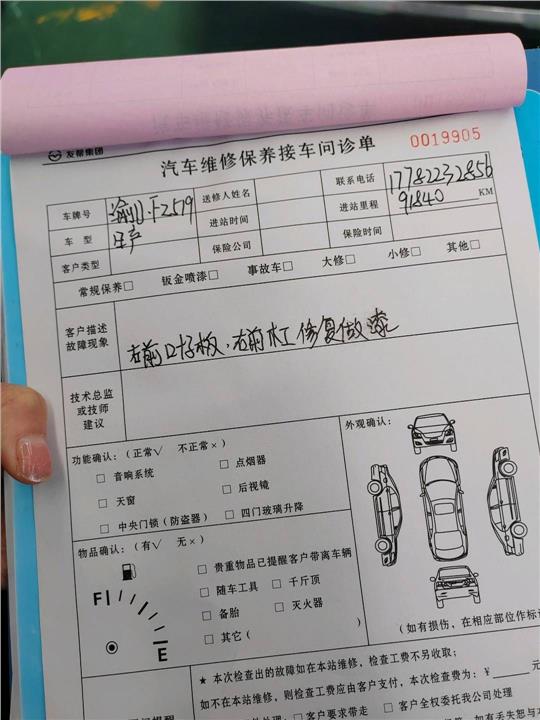 友帮集团
汽车维修保养接车问诊单
0019905
车牌号 送修人姓名 联系电话 17782232856
车 型 日产 进站时间 进站里程 91840 KM
客户类型 保险公司 保险时间
常规保养□ 钣金喷漆□ 事故车□ 大修□ 小修□ 其他□
客户描述
故障现象
右前叶子板，右前杠修复做漆
技术总监
或技师
建议
功能确认：（正常√ 不正常×）
外观确认：
□ 音响系统 □ 点烟器
□ 天窗 □ 后视镜
□ 中央门锁（防盗器） □ 四门玻璃升降
物品确认：（有√ 无×）
□ 贵重物品已提醒客户带离车辆
□ 随车工具 □ 千斤顶
□ 备胎 □ 灭火器
□ 其它（ ）
F
E
（如有损伤，在相应部位作标
★ 本次检查出的故障如在本站维修，检查工费不另收取；
如不在本站维修，则检查工费应由客户支付，本次检查费为：￥ 元
□ 客户要求带走 □ 客户全权委托我公司处理